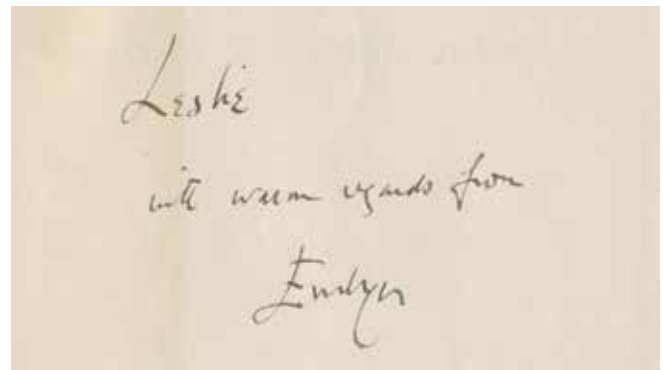 Leslie
with warm regards from
Emlyn